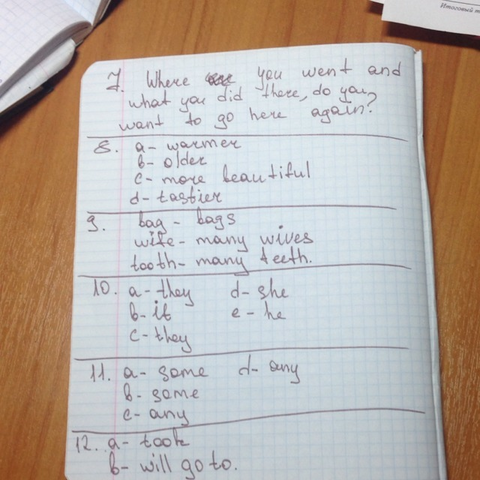 Итоговый
7. Where you went and
what you did there, do you
want to go here again?
8. a- warmer
b- older
c- more beautiful
d- tastier
9. bag - bags
wife - many wives
tooth - many teeth.
10. a- they d- she
b- it e- he
c- they
11. a- some d- any
b- some
c- any
12. a- took
b- will go to.